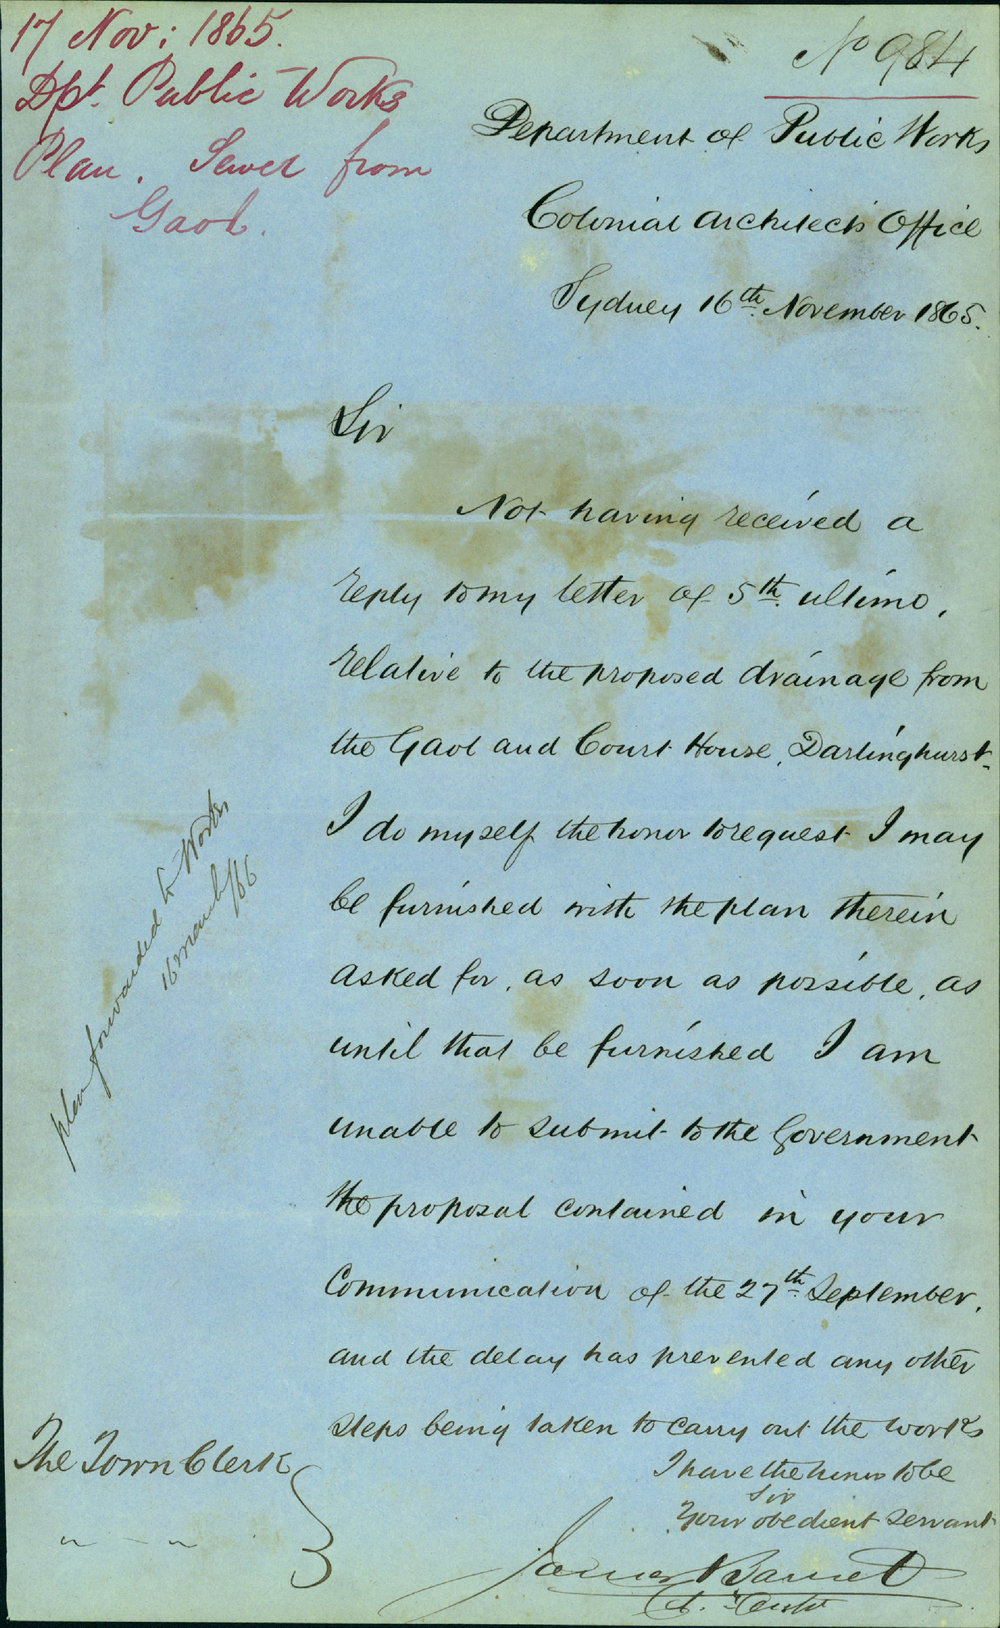 17 Nov: 1865.
Dpt. Public Works
Plan. Sewer from
Gaol.
No 984
Department of Public Works
Colonial Architects Office
Sydney 16th November 1865.
Sir
Not having received a
reply to my letter of 5th ultimo,
relative to the proposed drainage from
the Gaol and Court House, Darlinghurst.
I do myself the honor to request I may
be furnished with the plan therein
asked for, as soon as possible, as
until that be furnished I am
unable to submit to the Government
the proposal contained in your
Communication of the 27th September,
and the delay has prevented any other
steps being taken to carry out the works
I have the honor to be
Sir
Your obedient servant
James Barnet
The Town Clerk
" - "
plan forwarded to Works
16 march/66